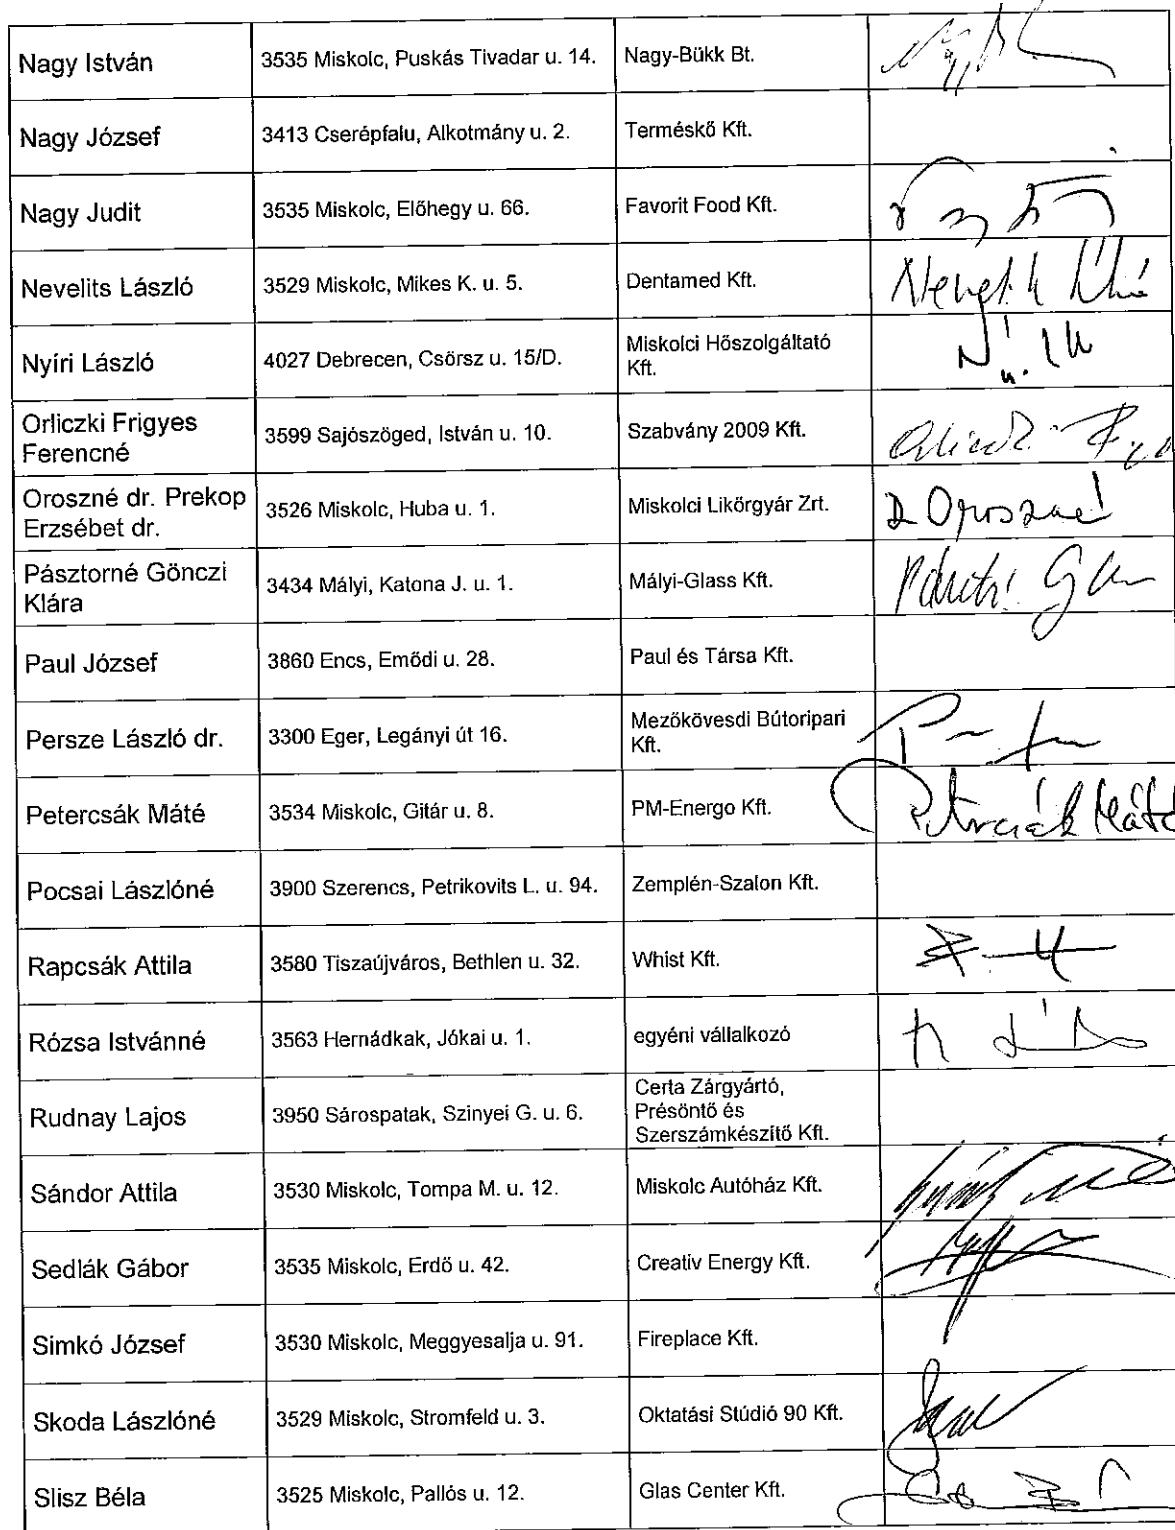 Nagy István
3535 Miskolc, Puskás Tivadar u. 14.
Nagy-Bükk Bt.
Nagy József
3413 Cserépfalu, Alkotmány u. 2.
Terméskő Kft.
Nagy Judit
3535 Miskolc, Előhegy u. 66.
Favorit Food Kft.
Nevelits László
3529 Miskolc, Mikes K. u. 5.
Dentamed Kft.
Nyíri László
4027 Debrecen, Csörsz u. 15/D.
Miskolci Hőszolgáltató
Kft.
Orliczki Frigyes
Ferencné
3599 Sajószöged, István u. 10.
Szabvány 2009 Kft.
Oroszné dr. Prekop
Erzsébet dr.
3526 Miskolc, Huba u. 1.
Miskolci Likőrgyár Zrt.
Oroszné
Pásztorné Gönczi
Klára
3434 Mályi, Katona J. u. 1.
Mályi-Glass Kft.
Paul József
3860 Encs, Emődi u. 28.
Paul és Társa Kft.
Persze László dr.
3300 Eger, Legányi út 16.
Mezőkövesdi Bútoripari
Kft.
Petercsák Máté
3534 Miskolc, Gitár u. 8.
PM-Energo Kft.
Petercsák Máté
Pocsai Lászlóné
3900 Szerencs, Petrikovits L. u. 94.
Zemplén-Szalon Kft.
Rapcsák Attila
3580 Tiszaújváros, Bethlen u. 32.
Whist Kft.
Rózsa Istvánné
3563 Hernádkak, Jókai u. 1.
egyéni vállalkozó
Rudnay Lajos
3950 Sárospatak, Szinyei G. u. 6.
Certa Zárgyártó,
Présöntő és
Szerszámkészítő Kft.
Sándor Attila
3530 Miskolc, Tompa M. u. 12.
Miskolc Autóház Kft.
Sedlák Gábor
3535 Miskolc, Erdő u. 42.
Creativ Energy Kft.
Simkó József
3530 Miskolc, Meggyesalja u. 91.
Fireplace Kft.
Skoda Lászlóné
3529 Miskolc, Stromfeld u. 3.
Oktatási Stúdió 90 Kft.
Slisz Béla
3525 Miskolc, Pallós u. 12.
Glas Center Kft.